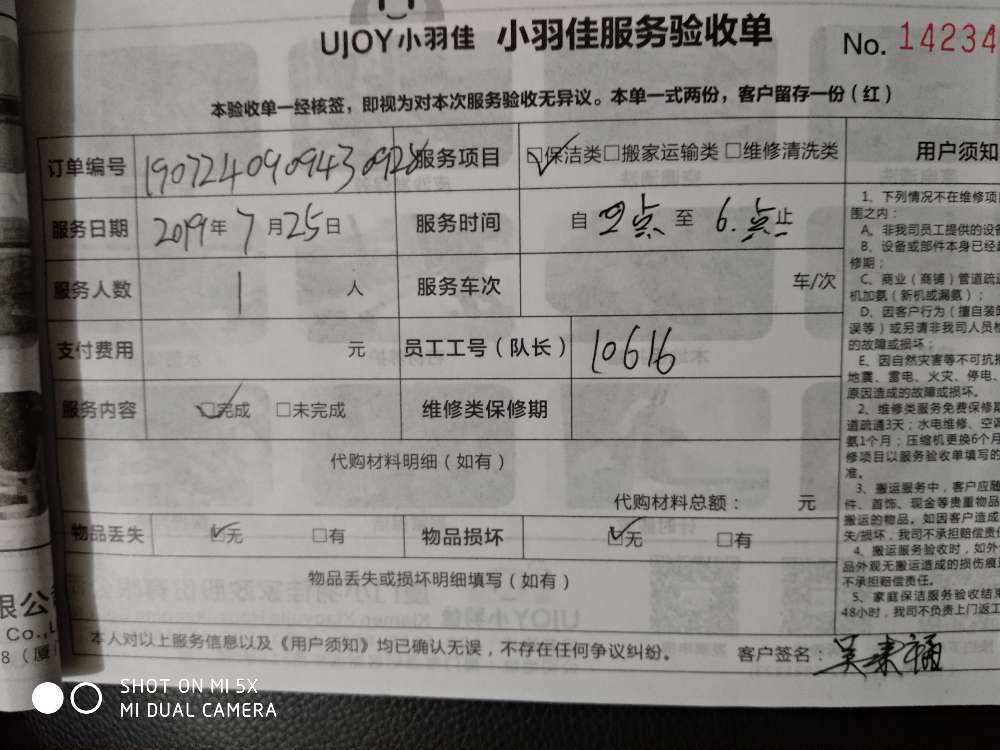 UJOY小羽佳 小羽佳服务验收单 No. 14234
本验收单一经核签，即视为对本次服务验收无异议。本单一式两份，客户留存一份（红）
订单编号 190724090943092 服务项目 ☑保洁类□搬家运输类□维修清洗类
服务日期 2019年7月25日 服务时间 自 2点 至 6.点止
服务人数 1 人 服务车次 车/次
支付费用 元 员工工号（队长） 10616
服务内容 ☑完成 □未完成 维修类保修期
代购材料明细（如有）
代购材料总额： 元
物品丢失 ☑无 □有 物品损坏 ☑无 □有
物品丢失或损坏明细填写（如有）
本人对以上服务信息以及《用户须知》均已确认无误，不存在任何争议纠纷。 客户签名：吴
用户须知
1、下列情况不在维修项
围之内：
A、非我司员工提供的设备
B、设备或部件本身已经
修期；
C、商业（商铺）管道疏
机加氨（新机或漏氨）；
D、因客户行为（擅自装
误等）或另请非我司人员
的故障或损坏；
E、因自然灾害等不可抗
地震、雷电、火灾、停电、
原因造成的故障或损坏。
2、维修类服务免费保修
道疏通3天；水电维修、空
氨1个月；压缩机更换6个月
修项目以服务验收单填写的
准。
3、搬运服务中，客户应
件、首饰、现金等贵重物品
搬运的物品。如因客户造成
失/损坏，我司不承担赔偿责
4、搬运服务验收时，如外
品外观无搬运造成的损伤痕
不承担赔偿责任。
5、家庭保洁服务验收结束
48小时，我司不负责上门返工
限公
Co.,
8（厦
SHOT ON MI 5X
MI DUAL CAMERA